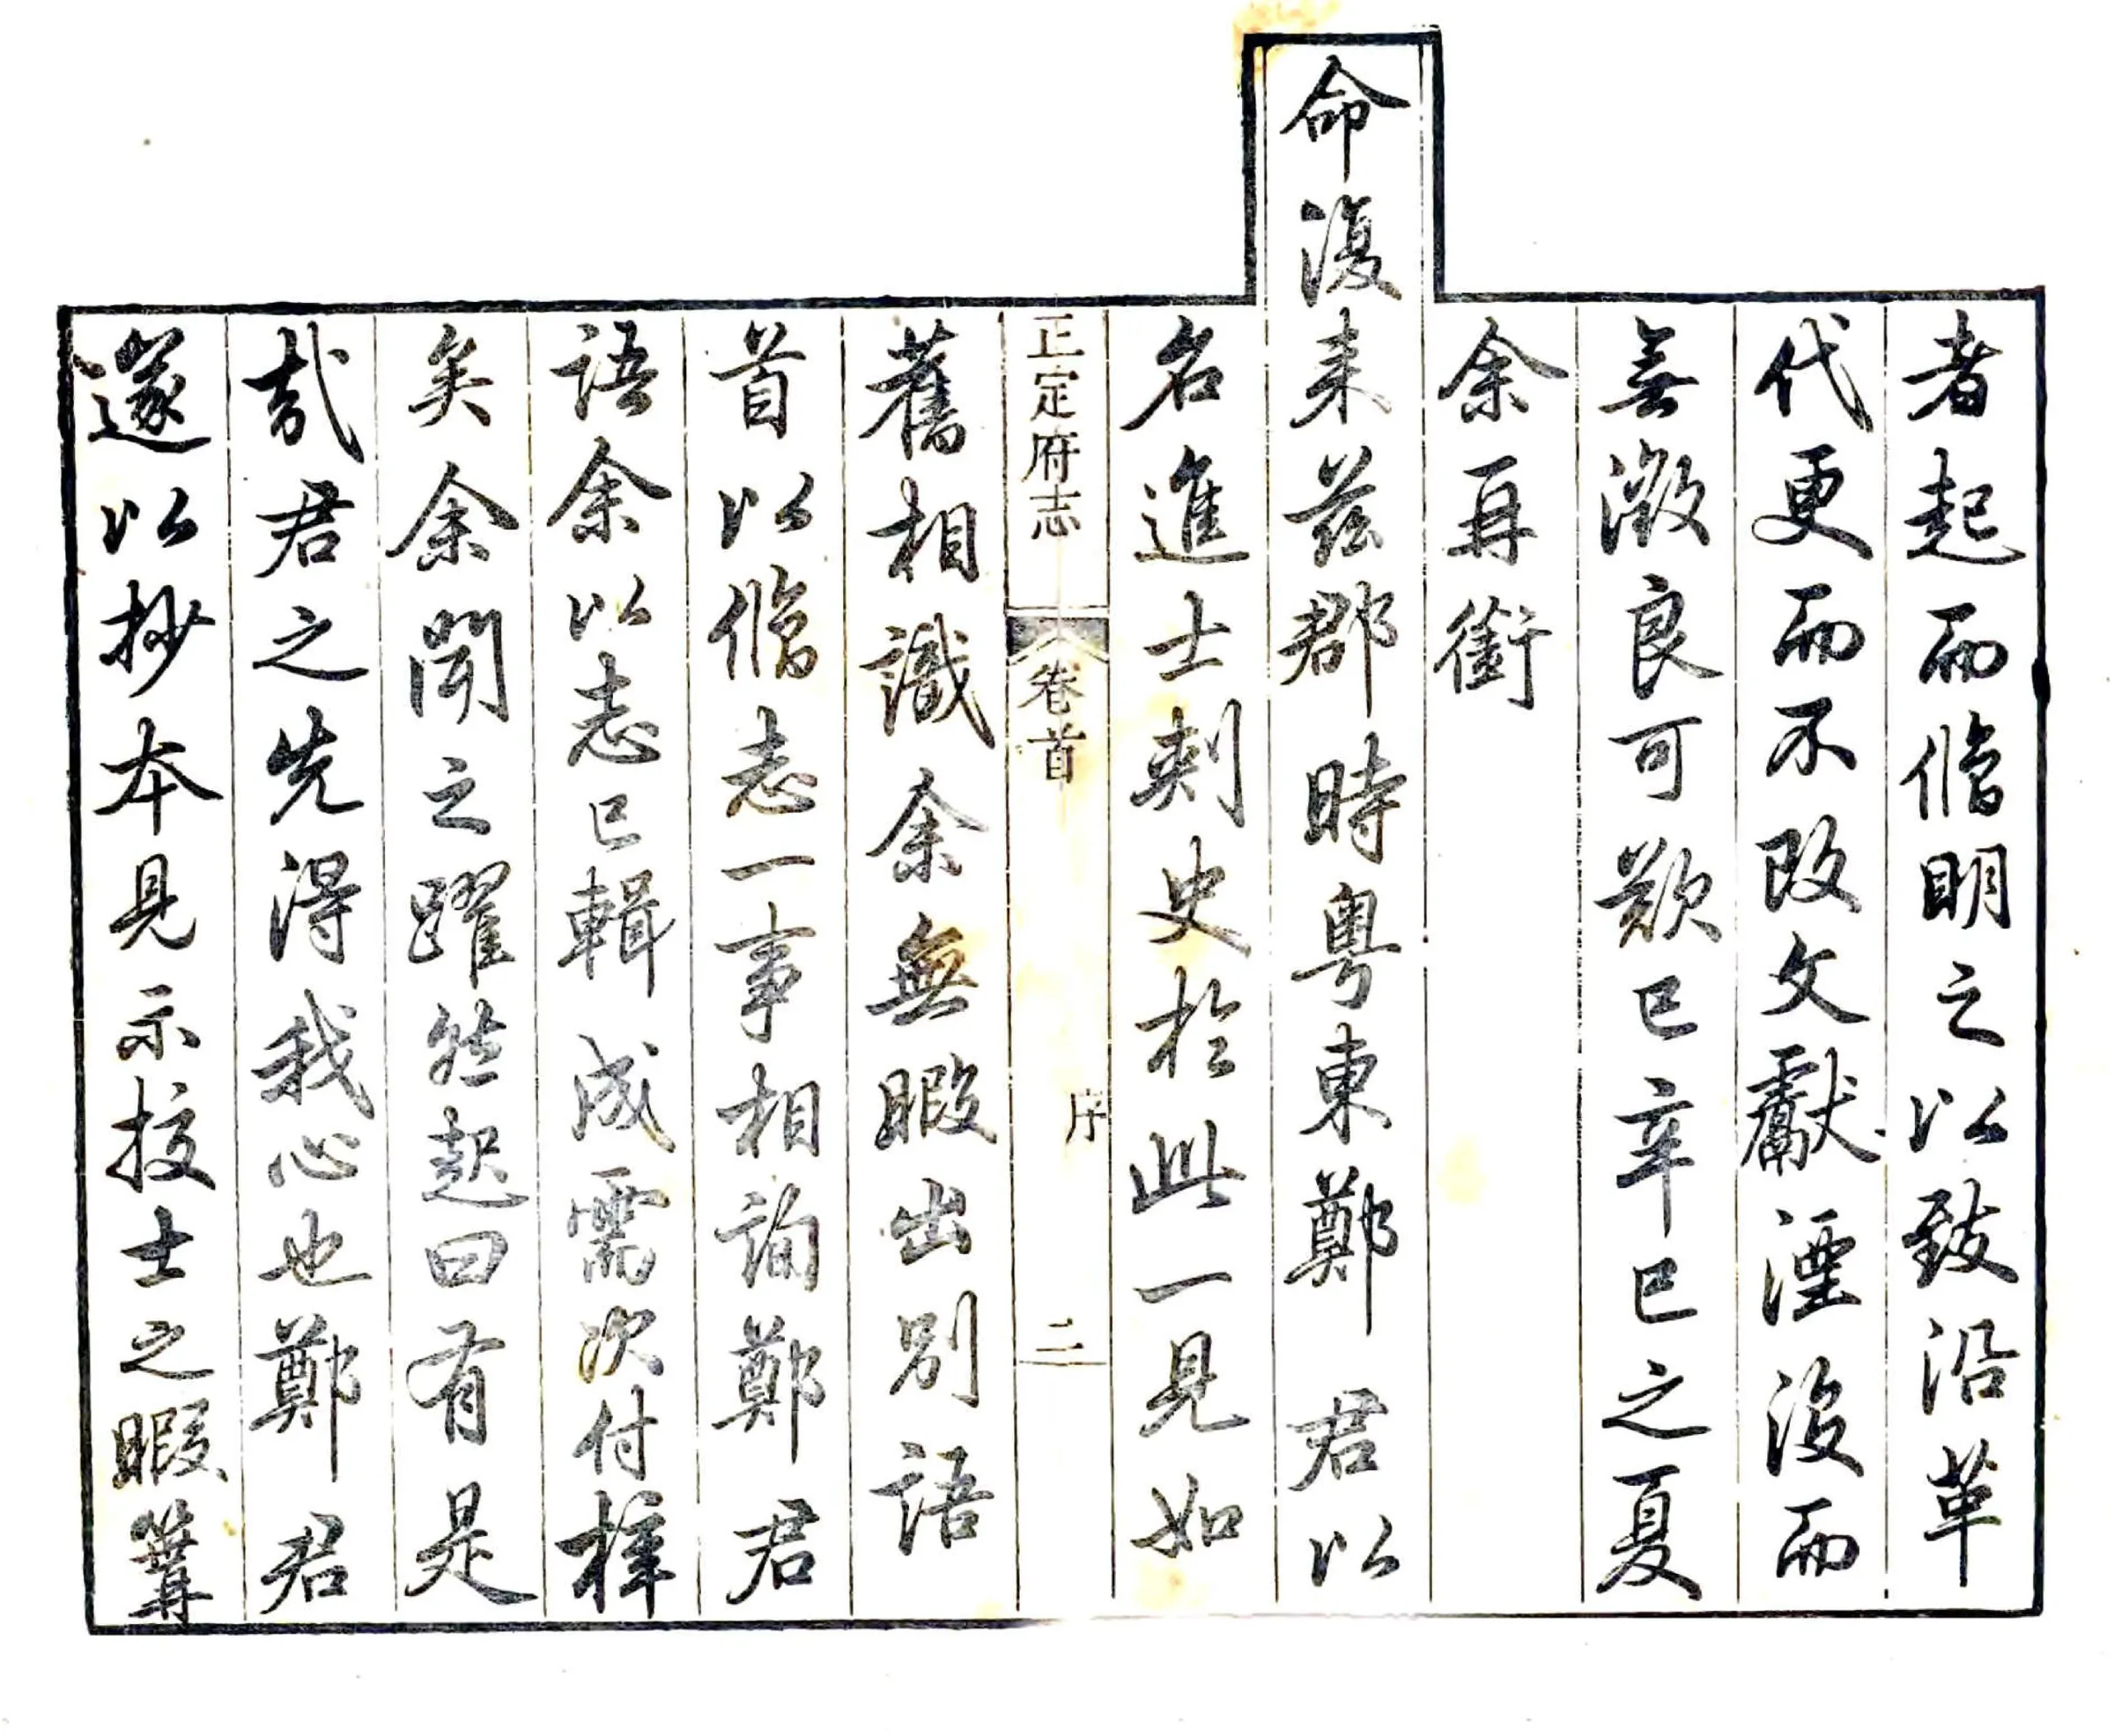 者起而脩明之以致沿革
代更而不改文獻湮没而
無徵良可歎已辛巳之夏
余再銜
命復来兹郡時粤東鄭君以
名進士刺史於此一見如
正定府志 卷首 序 二
舊相識余無暇出别語
首以脩志一事相詢鄭君
語余以志已輯成需次付梓
矣余聞之躍然起曰有是
哉君之先得我心也鄭君
遂以抄本見示挍士之暇篝